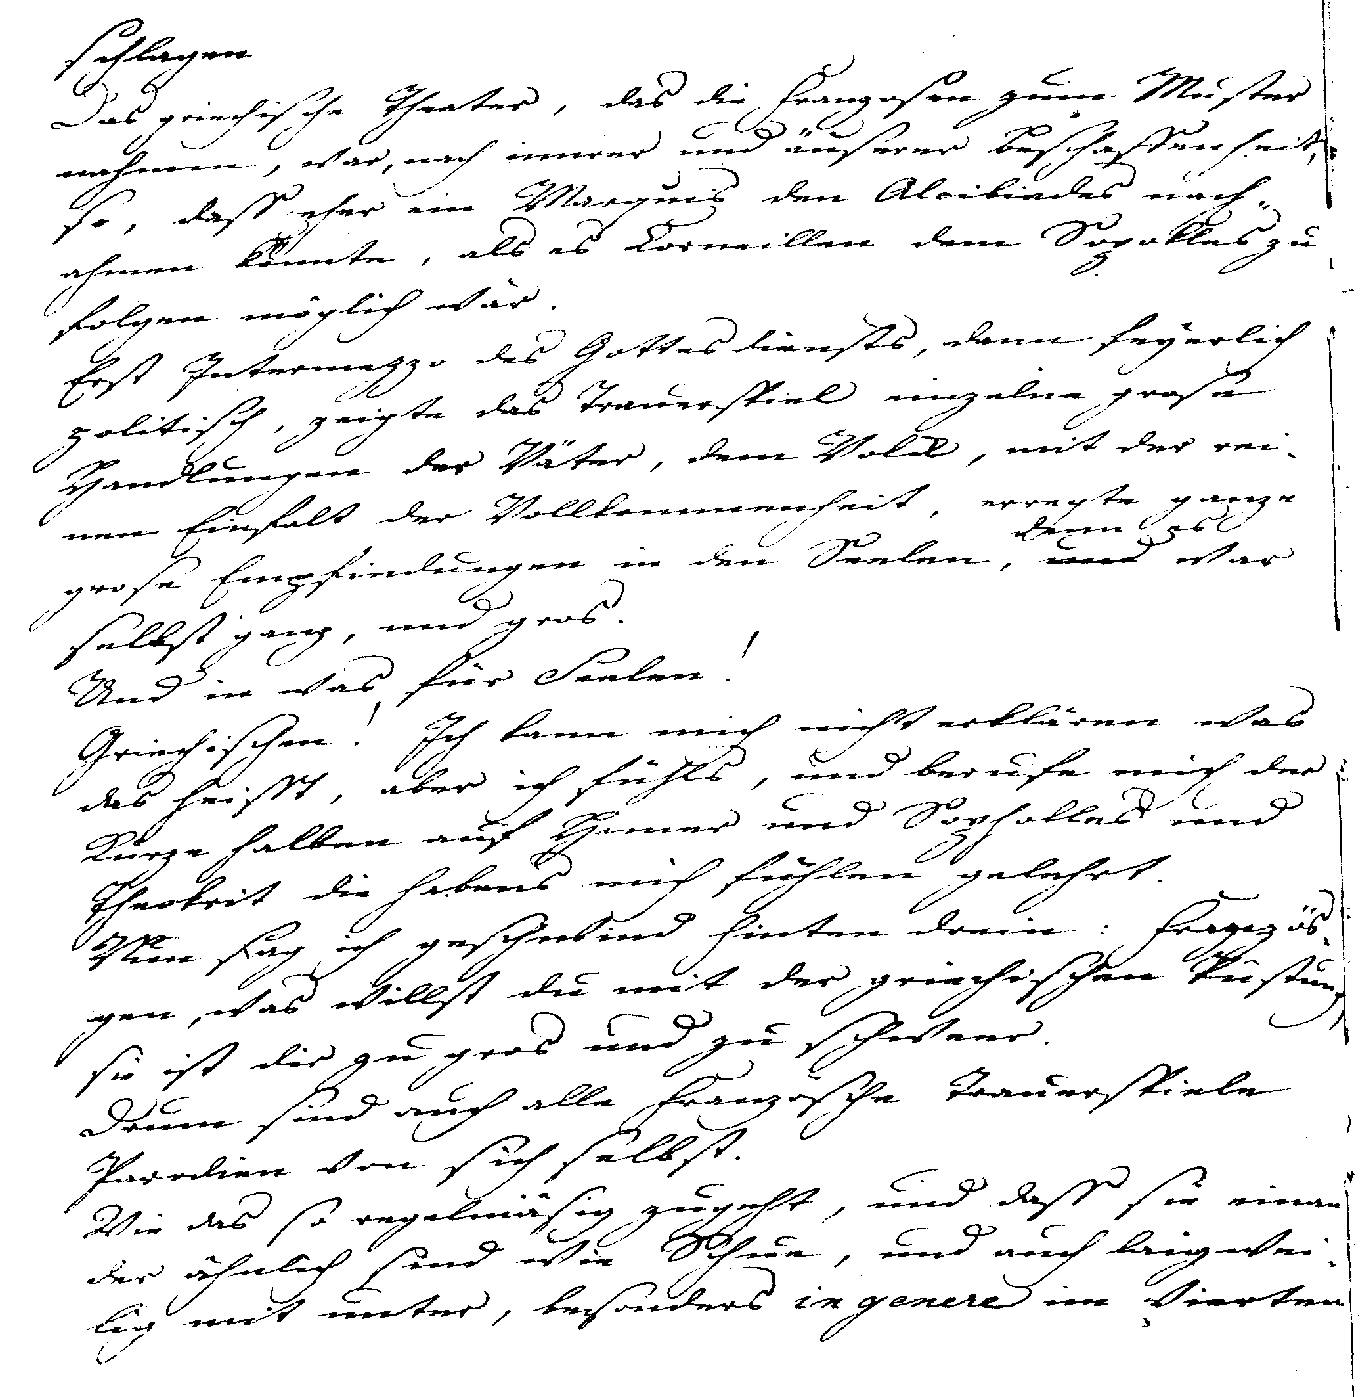 schlagen
Das griechische Theater, das die Franzosen zum Muster
nahmen, war, nach innrer und äuserer Beschaffenheit,
so, dass eher ein Marquis den Alcibiades nach„
ahmen könnte, als es Corneillen dem Sopokles zu
folgen möglich wär.
Erst Intermezzo des Gottesdiensts, dann feyerlich
politisch, zeigte das Trauerspiel einzelne grose
Handlungen der Väter, dem Volck, mit der rei-
nen Einfalt der Vollkommenheit, erregte ganze
grose Empfindungen in den Seelen, denn es war
selbst ganz, und gros.
Und in was für Seelen!
Griechischen! Ich kann mich nicht erklären was
das heisst, aber ich fühls, und berufe mich der
Kürze halben auf Homer und Sophokles und
Theokrit die habens mich fühlen gelehrt.
Nun sag ich geschwind hinten drein: Französ-
gen, was willst du mit der griechischen Rüstung
sie ist dir zu gros und zu schweer.
Drum sind auch alle Französche Trauerspiele
Parodien von sich selbst.
Wie das so regelmäsig zugeht, und dass sie einan
der ähnlich sind wie Schue, und auch langwei-
lig mit unter, besonders in genere im Vierten